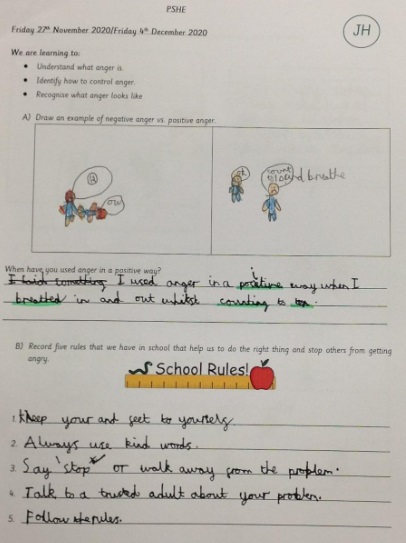 PSHE
JH
Friday 27th November 2020/Friday 4th December 2020
We are learning to:
• Understand what anger is.
• Identify how to control anger.
• Recognise what anger looks like
A) Draw an example of negative anger vs. positive anger.
ow
ok
count to 10 and breathe
When have you used anger in a positive way?
I used anger in a positive way when I
breathed in and out whilst counting to ten.
B) Record five rules that we have in school that help us to do the right thing and stop others from getting
angry.
School Rules!
1. Kheep your and feet to yourself.
2. Always use kind words.
3. Say 'stop' or walk away from the problem.
4. Talk to a trusted adult about your problem.
5. Follow the rules.